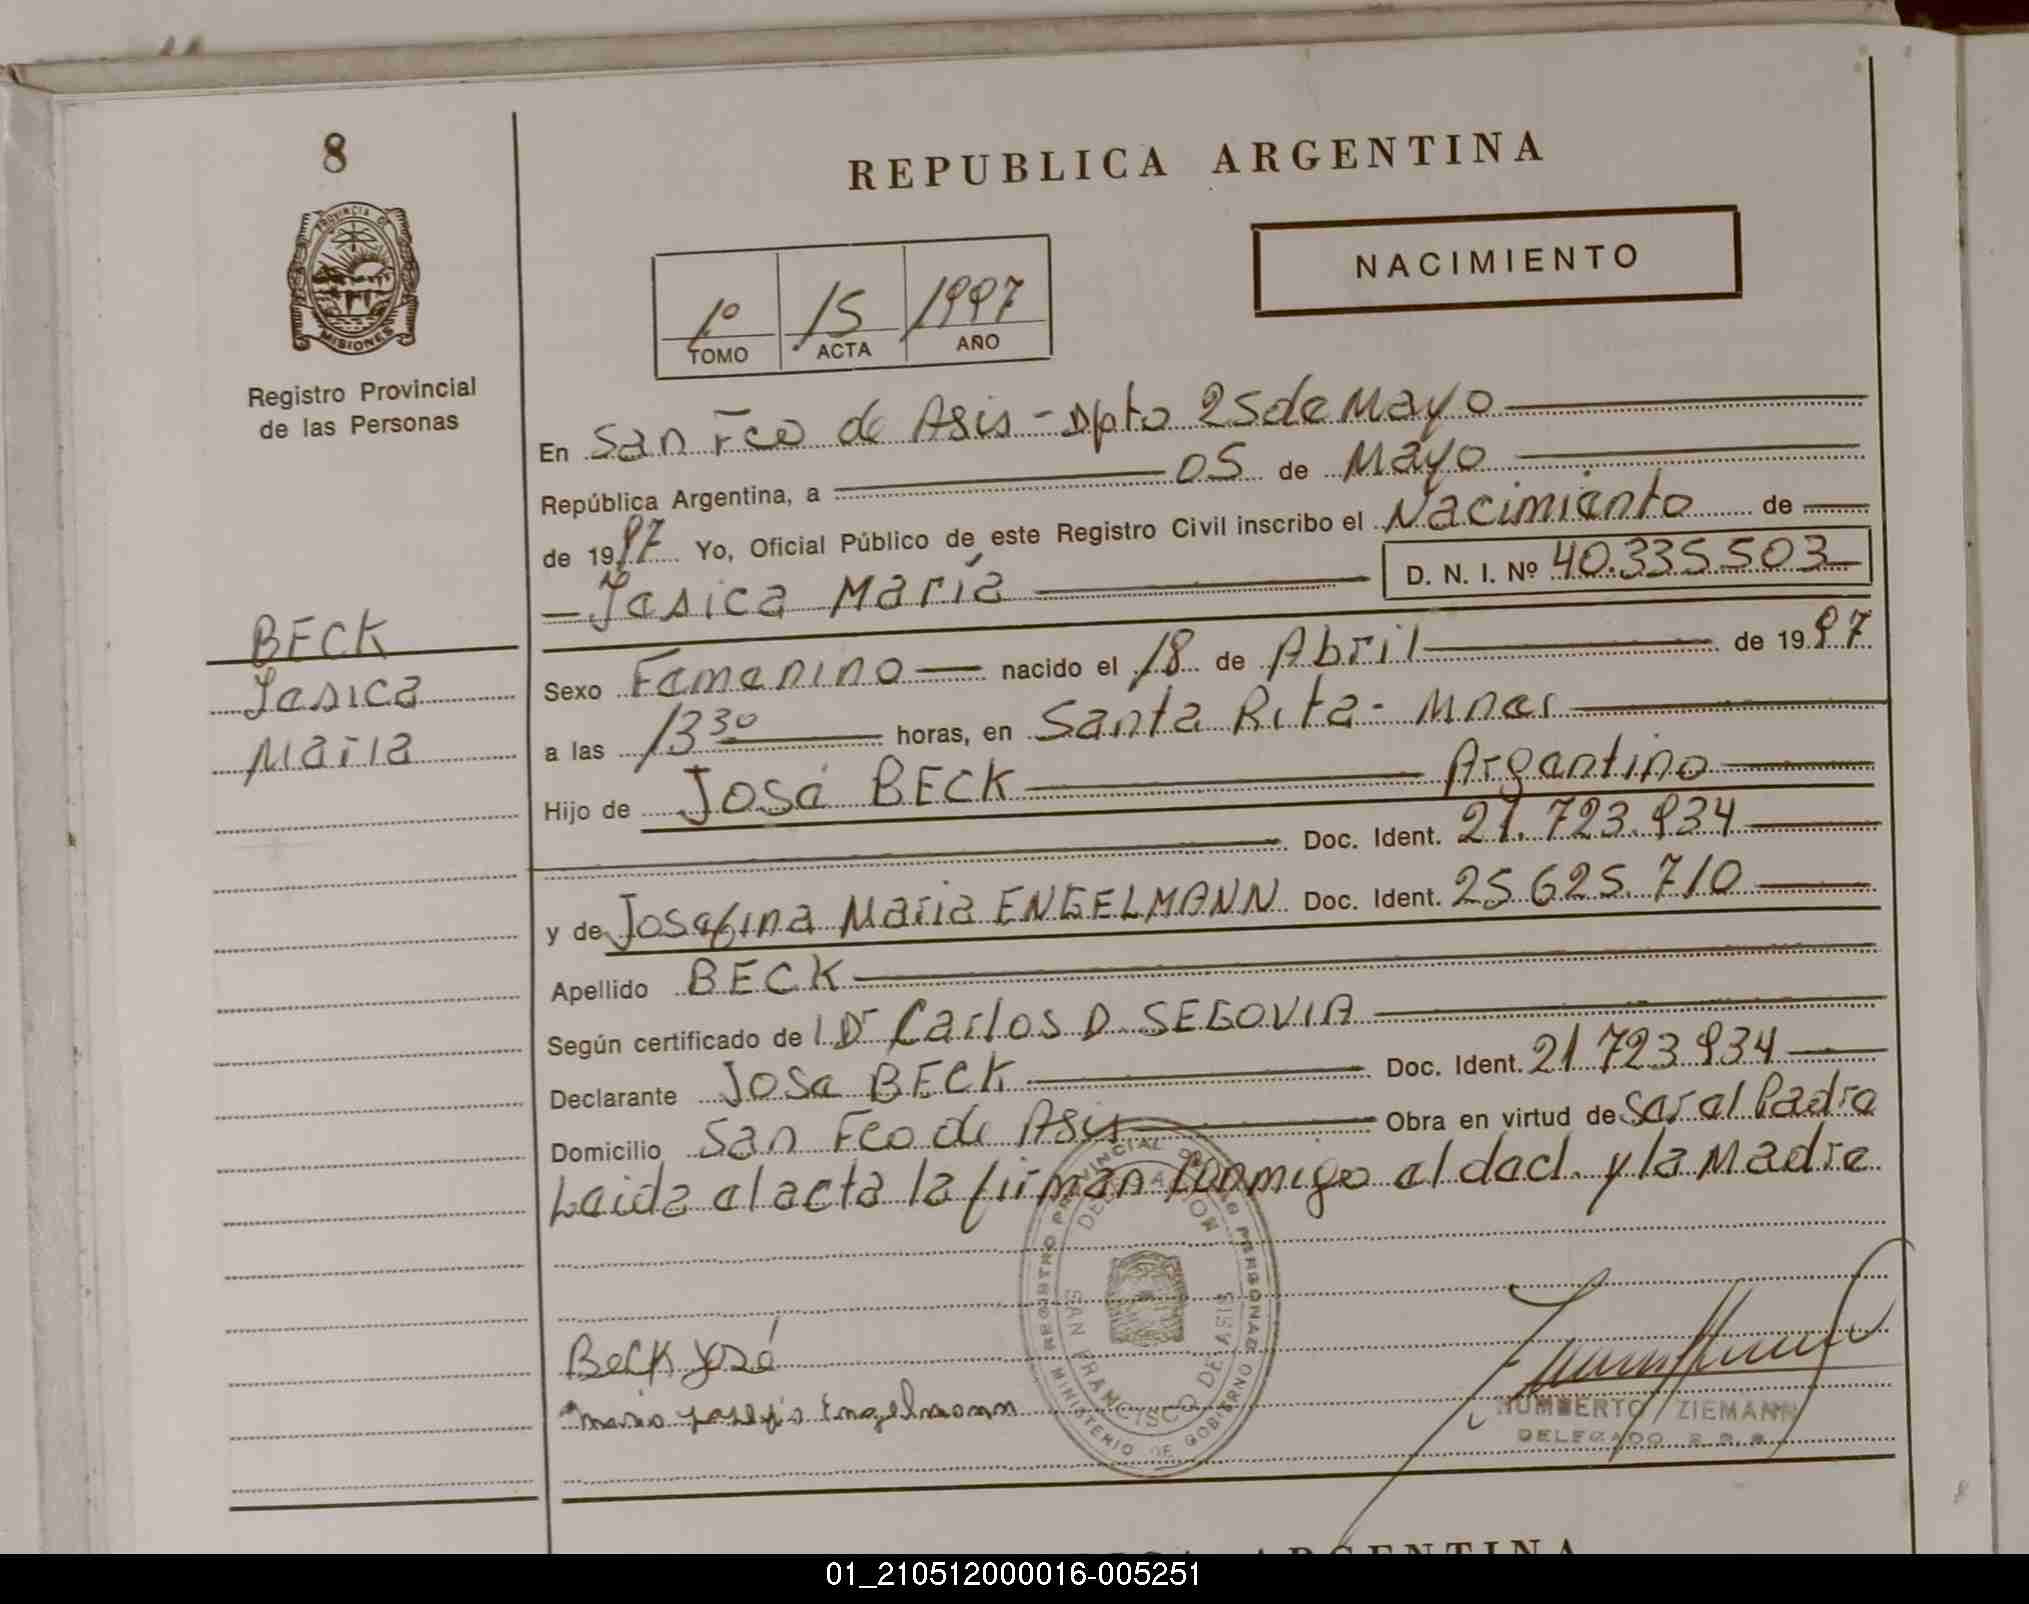 8
REPUBLICA ARGENTINA
PROVINCIA DE
MISIONES
NACIMIENTO
1º 15 1997
TOMO ACTA AÑO
Registro Provincial
de las Personas
En San Fco de Asis - Dpto 25 de Mayo
República Argentina, a 05 de Mayo
de 1997 Yo, Oficial Público de este Registro Civil inscribo el Nacimiento de
Yesica María D. N. I. Nº 40.335.503
BECK
Yesica
Maria
Sexo Femenino nacido el 18 de Abril de 1997
a las 13 30 horas, en Santa Rita - Mnes
Hijo de José BECK Argentino
Doc. Ident. 21.723.934
y de Josefina Maria ENGELMANN Doc. Ident. 25.625.710
Apellido BECK
Según certificado de Dr Carlos D. SEGOVIA
Declarante Jose BECK Doc. Ident. 21 723 934
Domicilio San Fco de Asis Obra en virtud de ser el Padre
Leida el acta la firman conmigo el decl. y la Madre
REGISTRO PROVINCIAL DE LAS PERSONAS
DELEGACION
SAN FRANCISCO DE ASIS
MINISTERIO DE GOBIERNO
Beck José
Engelmann
HUMBERTO ZIEMANN
DELEGADO
ARGENTINA
01_210512000016-005251